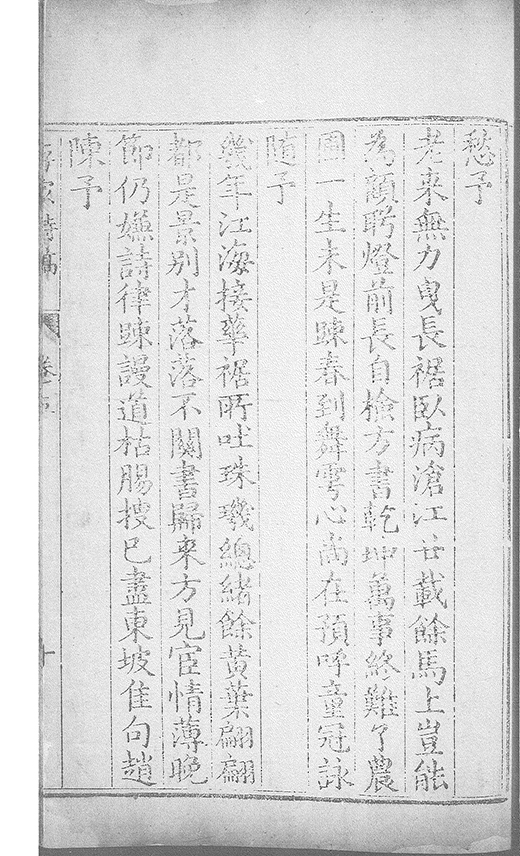 愁予
老來無力曳長裾臥病滄江廿載餘馬上豈能
為顧盻燈前長自檢方書乾坤萬事終難了農
圃一生未是踈春到舞雩心尚在預呼童冠詠
随予
幾年江海接華裾所吐珠璣總緒餘黄葉翩翩
都是景别才落落不関書歸来方見宦情薄晚
節仍嫌詩律踈謾道枯腸搜已盡東坡佳句趙
陳予
家詩稿 卷五 十